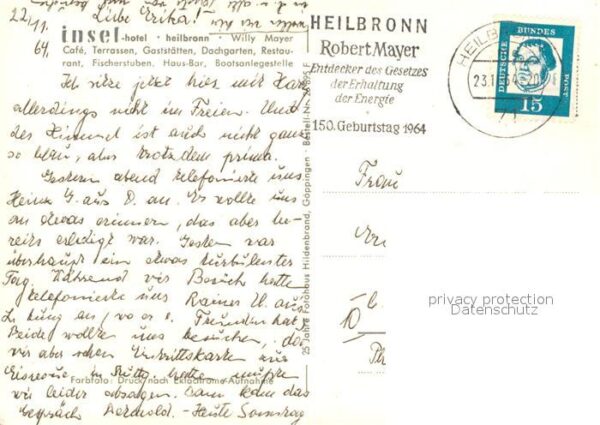 22/
11.
64.
Liebe Erika!
insel-hotel · heilbronn · Willy Mayer
Café, Terrassen, Gaststätten, Dachgarten, Restau-
rant, Fischerstuben. Haus-Bar, Bootsanlegestelle
Ich sitze jetzt hier mit
allerdings nicht im Freien. Und
der Himmel ist auch nicht ganz
so blau, aber trotzdem prima.
Gestern abend telefonierte uns
Heinz G. aus D. an. Er wollte uns
an etwas erinnern, das aber be-
reits erledigt war. Gestern war
überhaupt ein etwas turbulenter
Tag. Während wir Besuch hatten
telefonierte uns Rainer U. aus
an, wo er Freunden hat.
Beide wollten uns besuchen, da
wir aber schon Eintrittskarten zur
Eisrevue in hatten mußten
wir leider absagen. Dann kam das
Gespräch . - Heute Sonntag
Farbfoto: Druck nach Ektachrome-Aufnahme
25 Jahre Fotohaus Hildenbrand, Göppingen · Bestell-Nr.
HEILBRONN
Robert Mayer
Entdecker des Gesetzes
der Erhaltung
der Energie
150. Geburtstag 1964
HEILB
23.1
71
DEUTSCHE
BUNDES
POST
15
Frau
10
privacy protection
Datenschutz